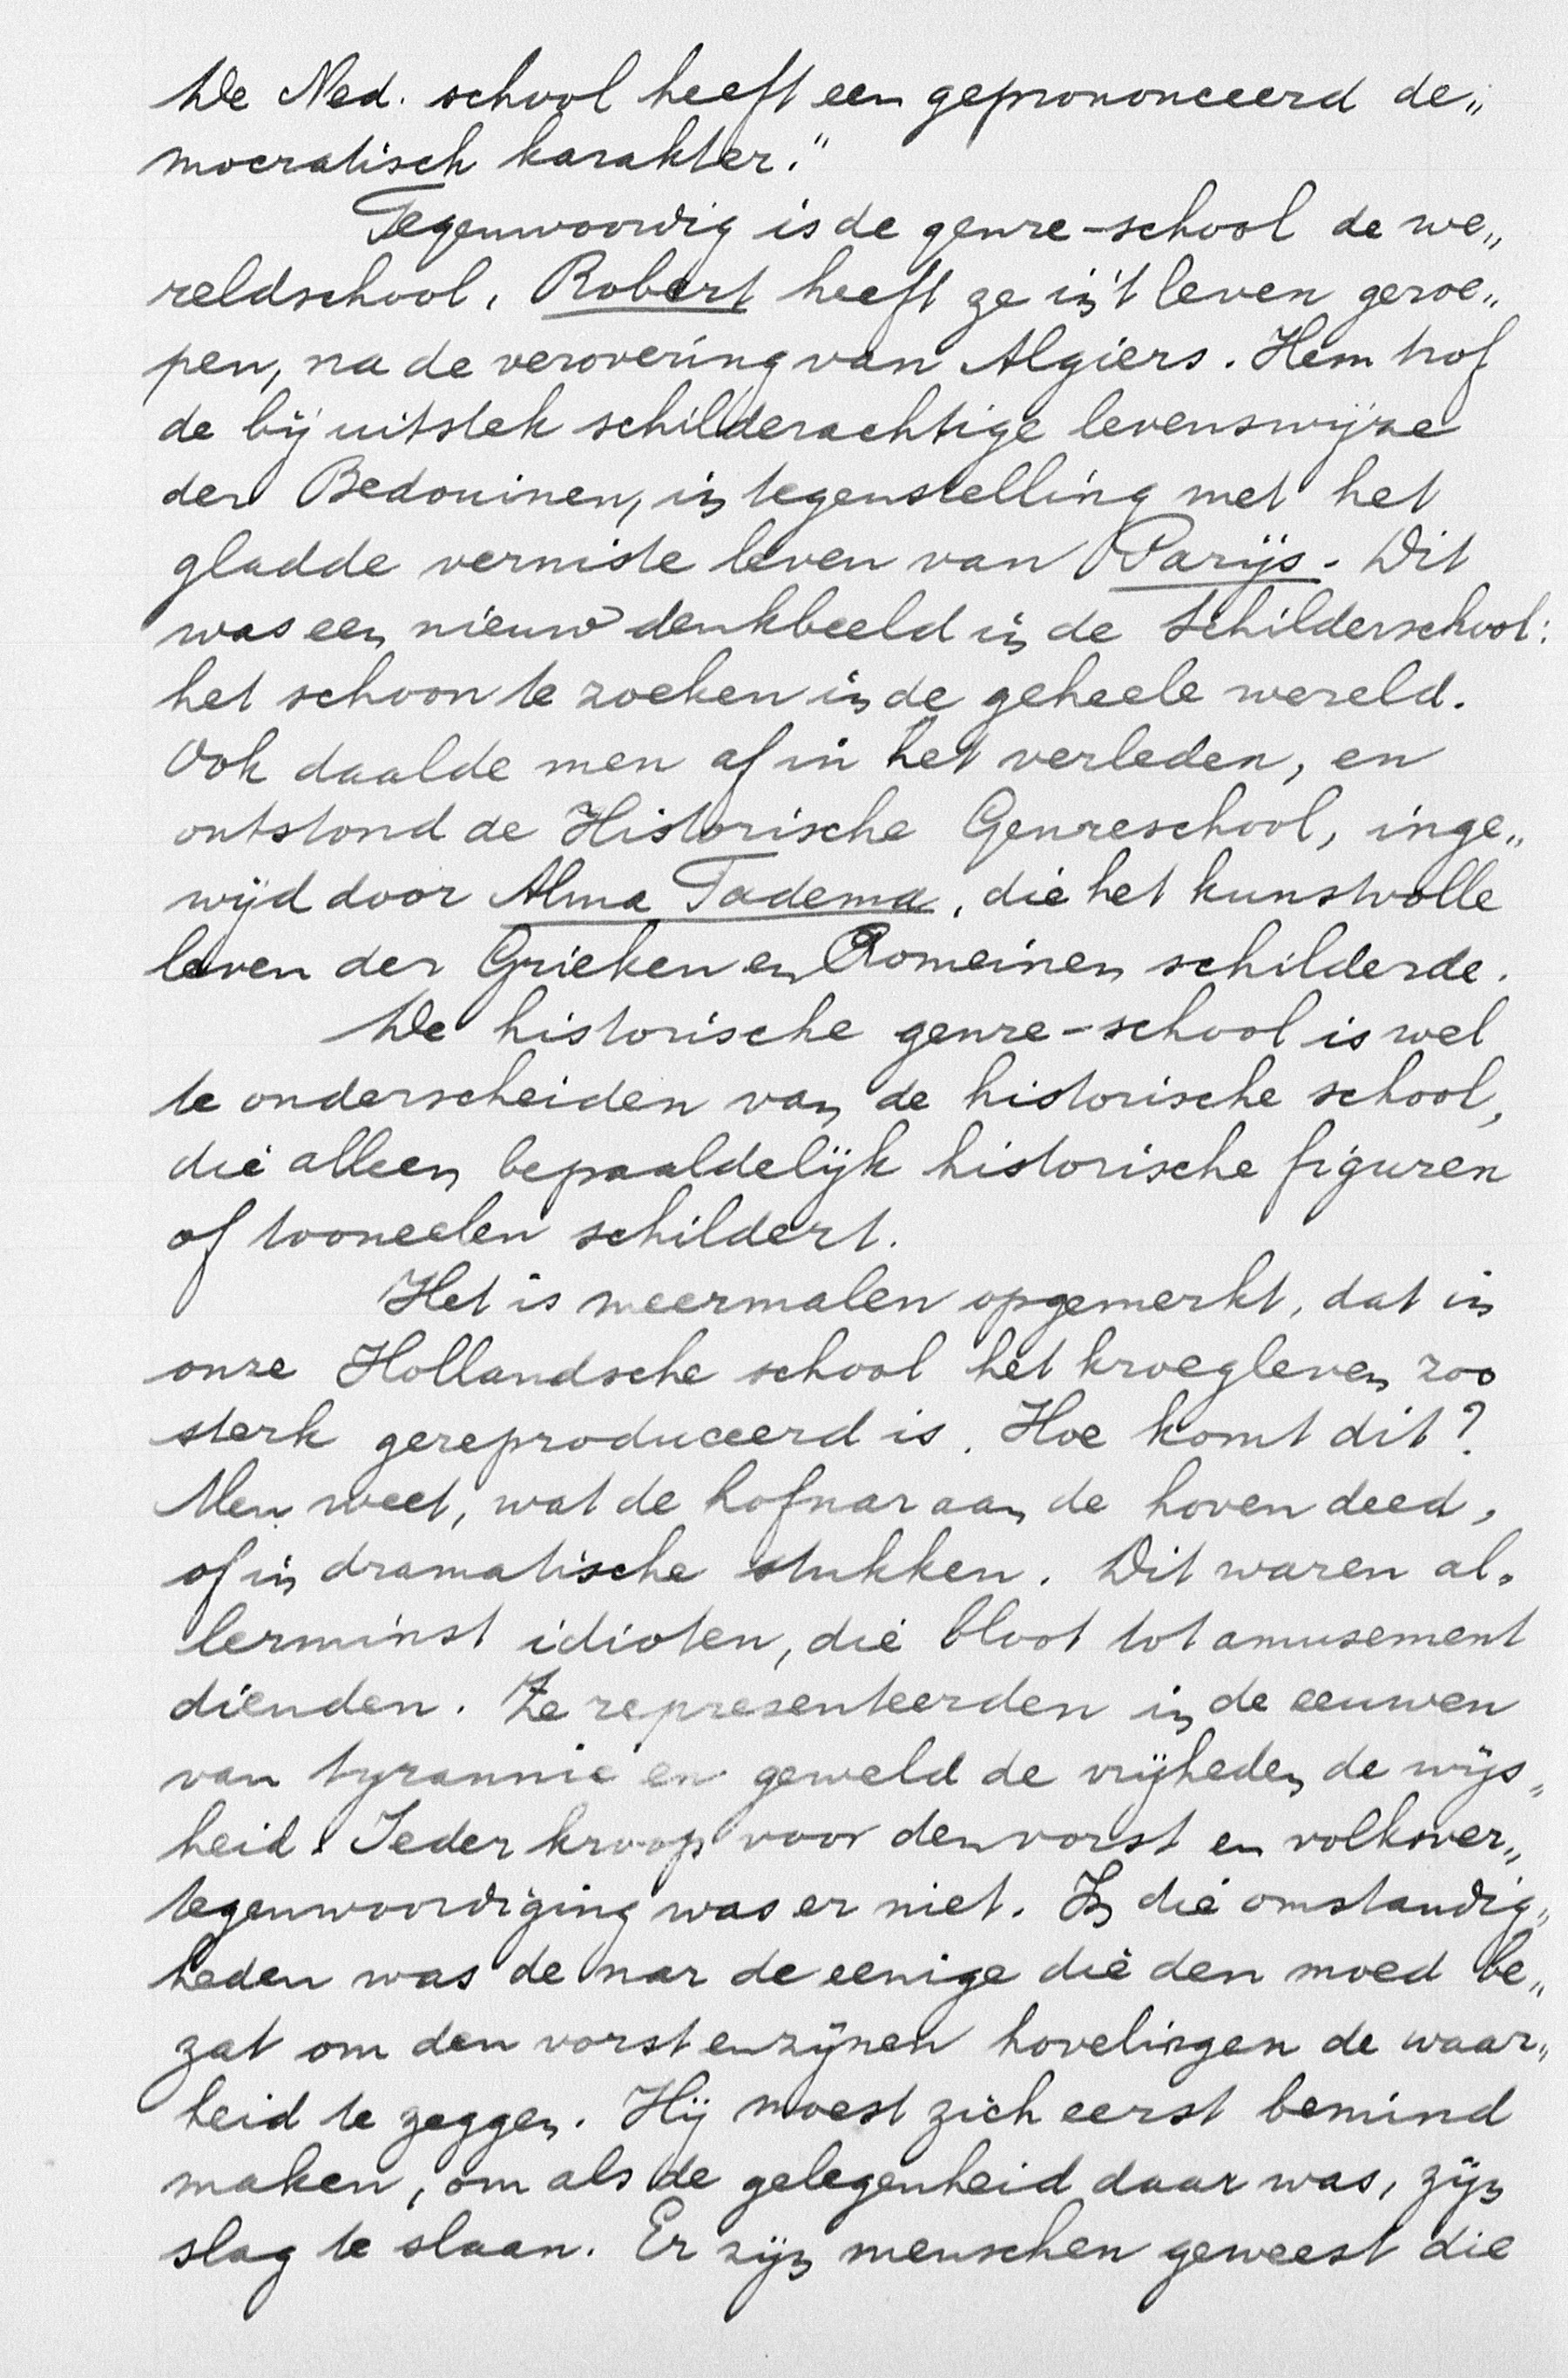 De Ned. school heeft een geprononceerd de„
mocratisch karakter.“
Tegenwoordig is de genre-school de we„
reldschool. Robert heeft ze in 't leven geroe„
pen, na de verovering van Algiers. Hem trof
de bij uitstek schilderachtige levenswijze
der Bedouinen, in tegenstelling met het
gladde verniste leven van Parijs. Dit
was een nieuw denkbeeld in de Schilderschool:
het schoon te zoeken in de geheele wereld.
Ook daalde men af in het verleden, en
ontstond de Historische Genreschool, inge„
wijd door Alma Tadema, die het kunstvolle
leven der Grieken en Romeinen schilderde.
De historische genre-school is wel
te onderscheiden van de historische school,
die alleen bepaaldelijk historische figuren
of tooneelen schildert.
Het is meermalen opgemerkt, dat in
onze Hollandsche school het kroegleven zoo
sterk gereproduceerd is. Hoe komt dit?
Men weet, wat de hofnar aan de hoven deed,
of in dramatische stukken. Dit waren al„
lerminst idioten, die bloot tot amusement
dienden. Ze representeerden in de eeuwen
van tyrannie en geweld de vrijheden de wijs„
heid. Ieder kroop voor den vorst en volksver„
tegenwoordiging was er niet. In die omstandig„
heden was de nar de eenige die den moed be„
zat om den vorst en zijnen hovelingen de waar„
heid te zeggen. Hij moest zich eerst bemind
maken, om als de gelegenheid daar was, zijn
slag te slaan. Er zijn menschen geweest die